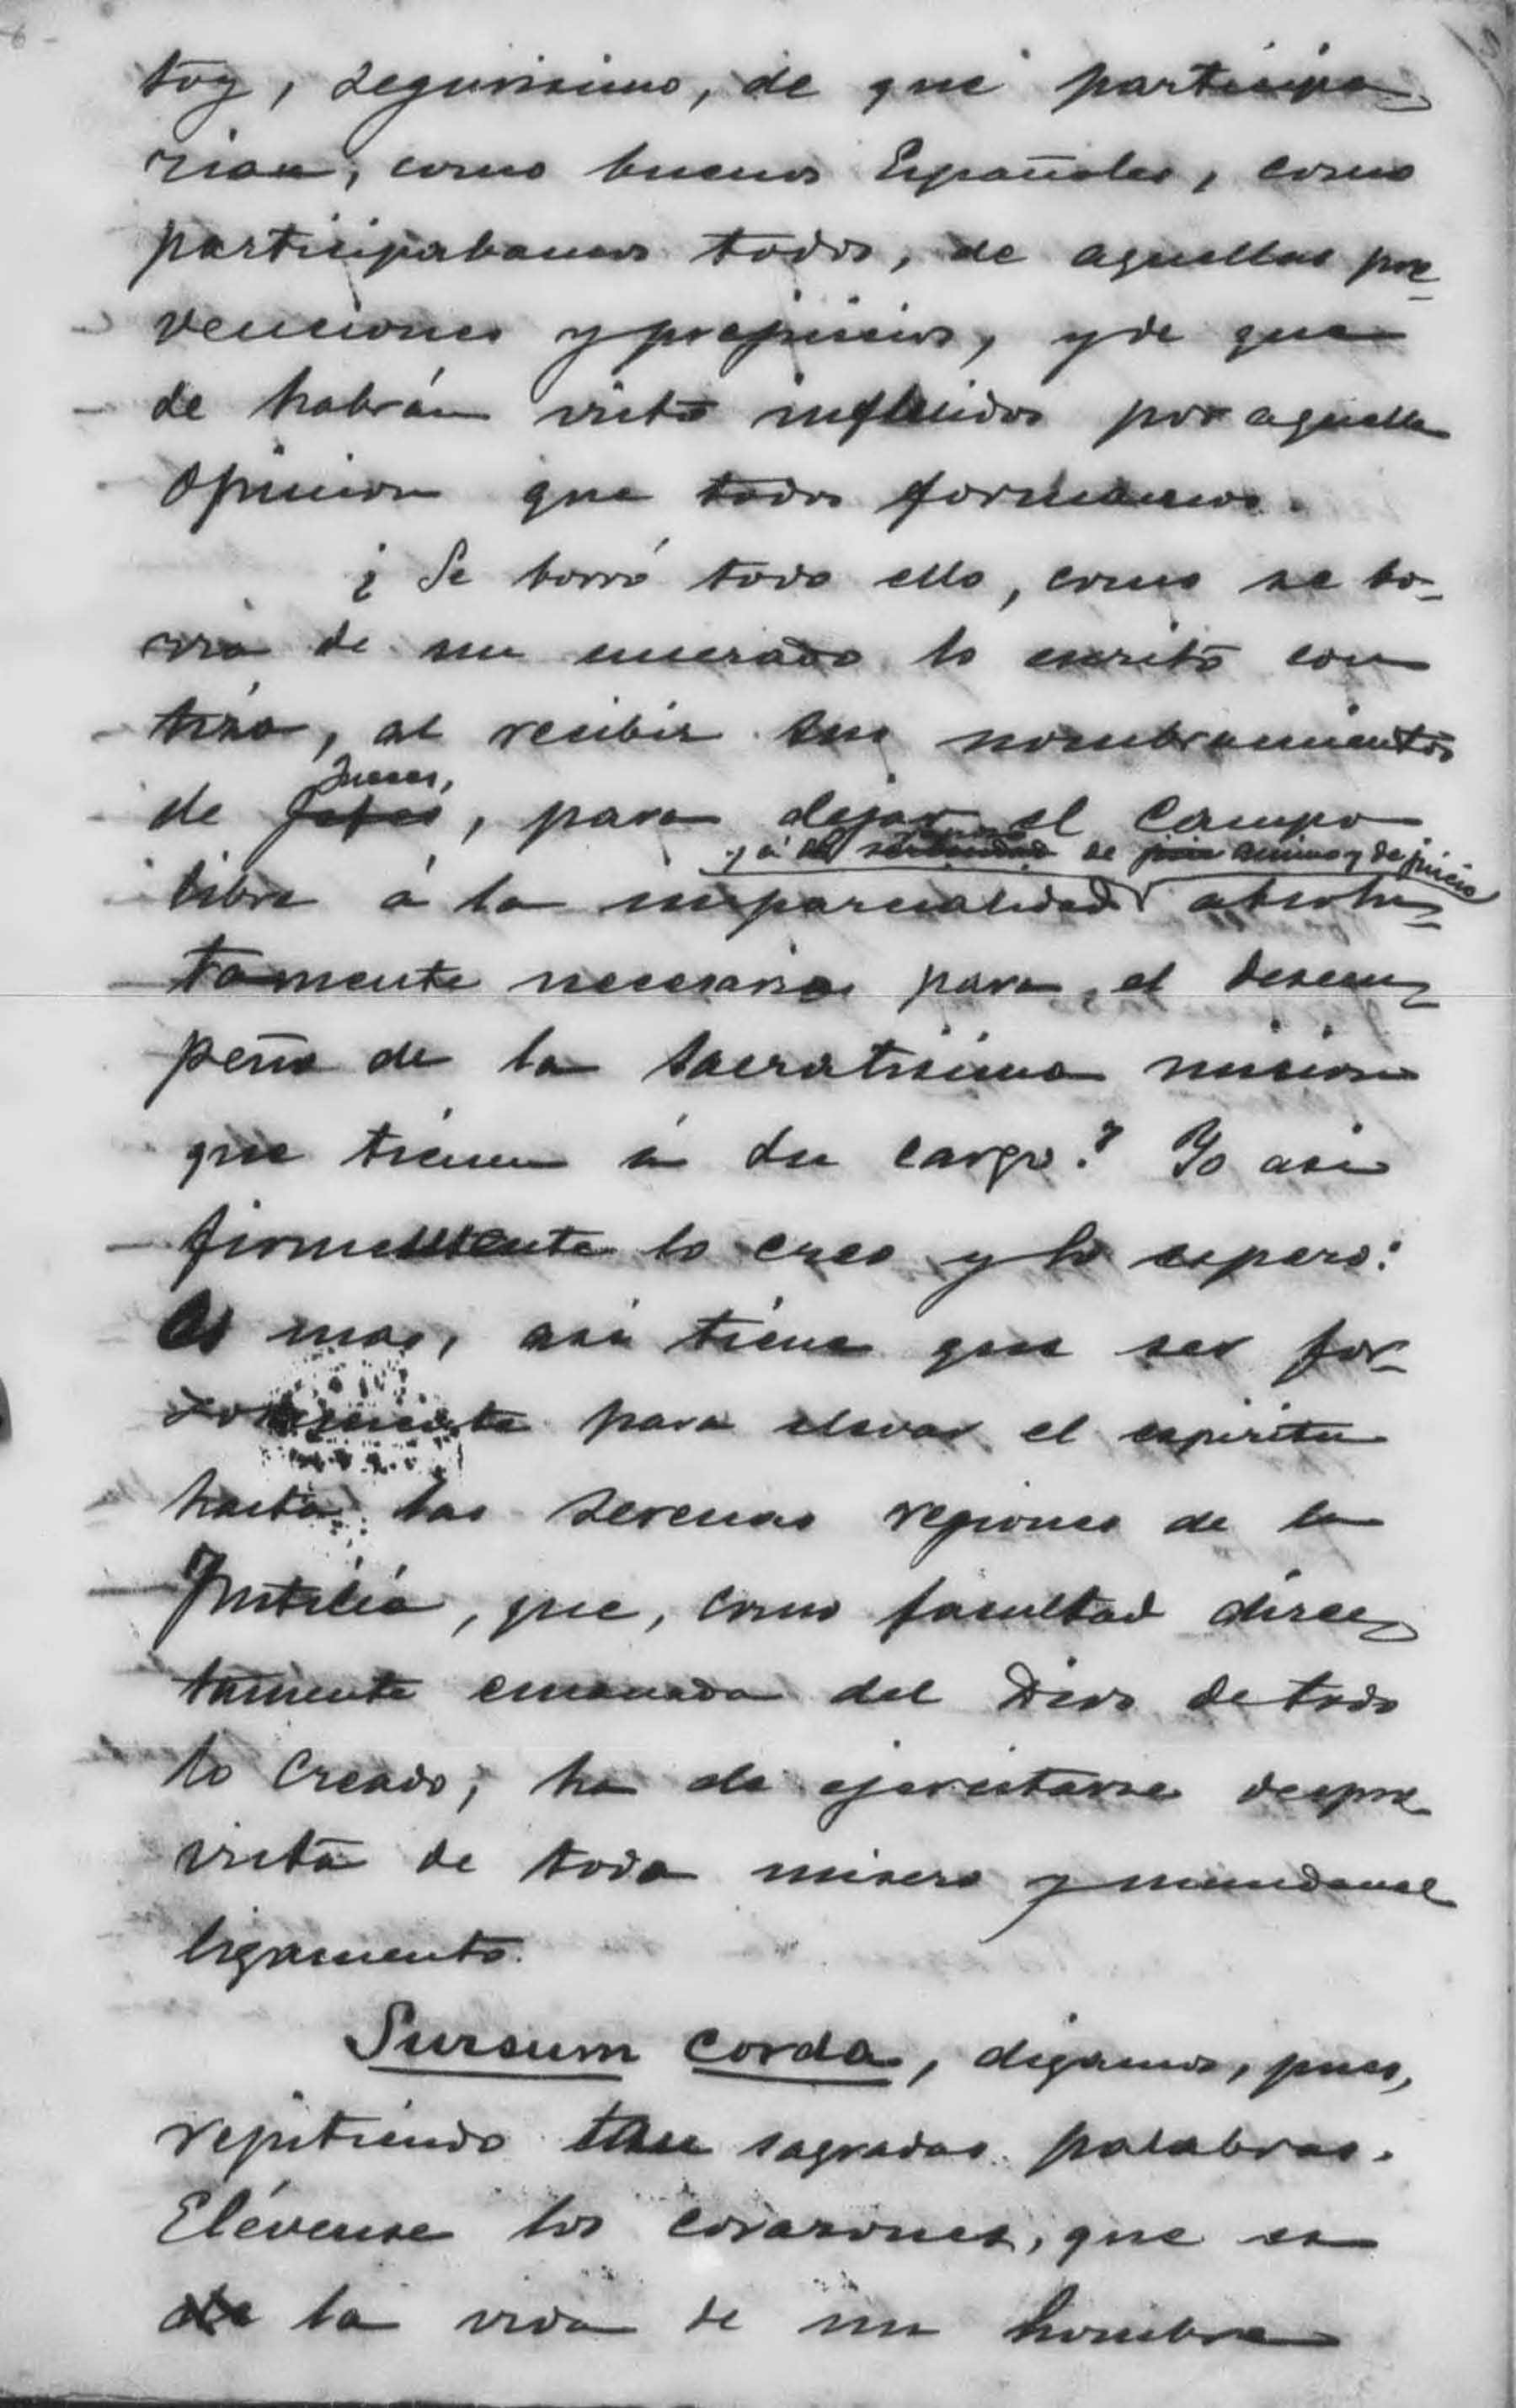 toy, segurisimo, de que participa-
rian, como buenos Españoles, como
participabamos todos, de aquellas pre-
venciones y prejuicios, y de que
se habrán visto influidos por aquella
opinion que todos formamos.
¿Se borró todo ello, como se bo-
rra de un encerado lo escrito con
tiza, al recibir sus nombramientos
Jueces,
de, para dejar el campo
y á la de animo y de juicio
libre á la imparcialidad absolu-
tamente necesaria para el desem-
peño de la sacratisima mision
que tienen á su cargo? Yo asi
firmemente lo creo y lo espero:
Es mas, asi tiene que ser for-
zosamente para elevar el espiritu
hasta las serenas regiones de la
Justicia, que, como facultad direc-
tamente emanada del Dios de todo
lo Creado, ha de ejercitarse despro-
vista de toda misero y mundanal
ligamento.
Sursum corda, digamos, pues,
repitiendo tan sagradas palabras.
Elévense los corazones, que es
la vida de un hombre